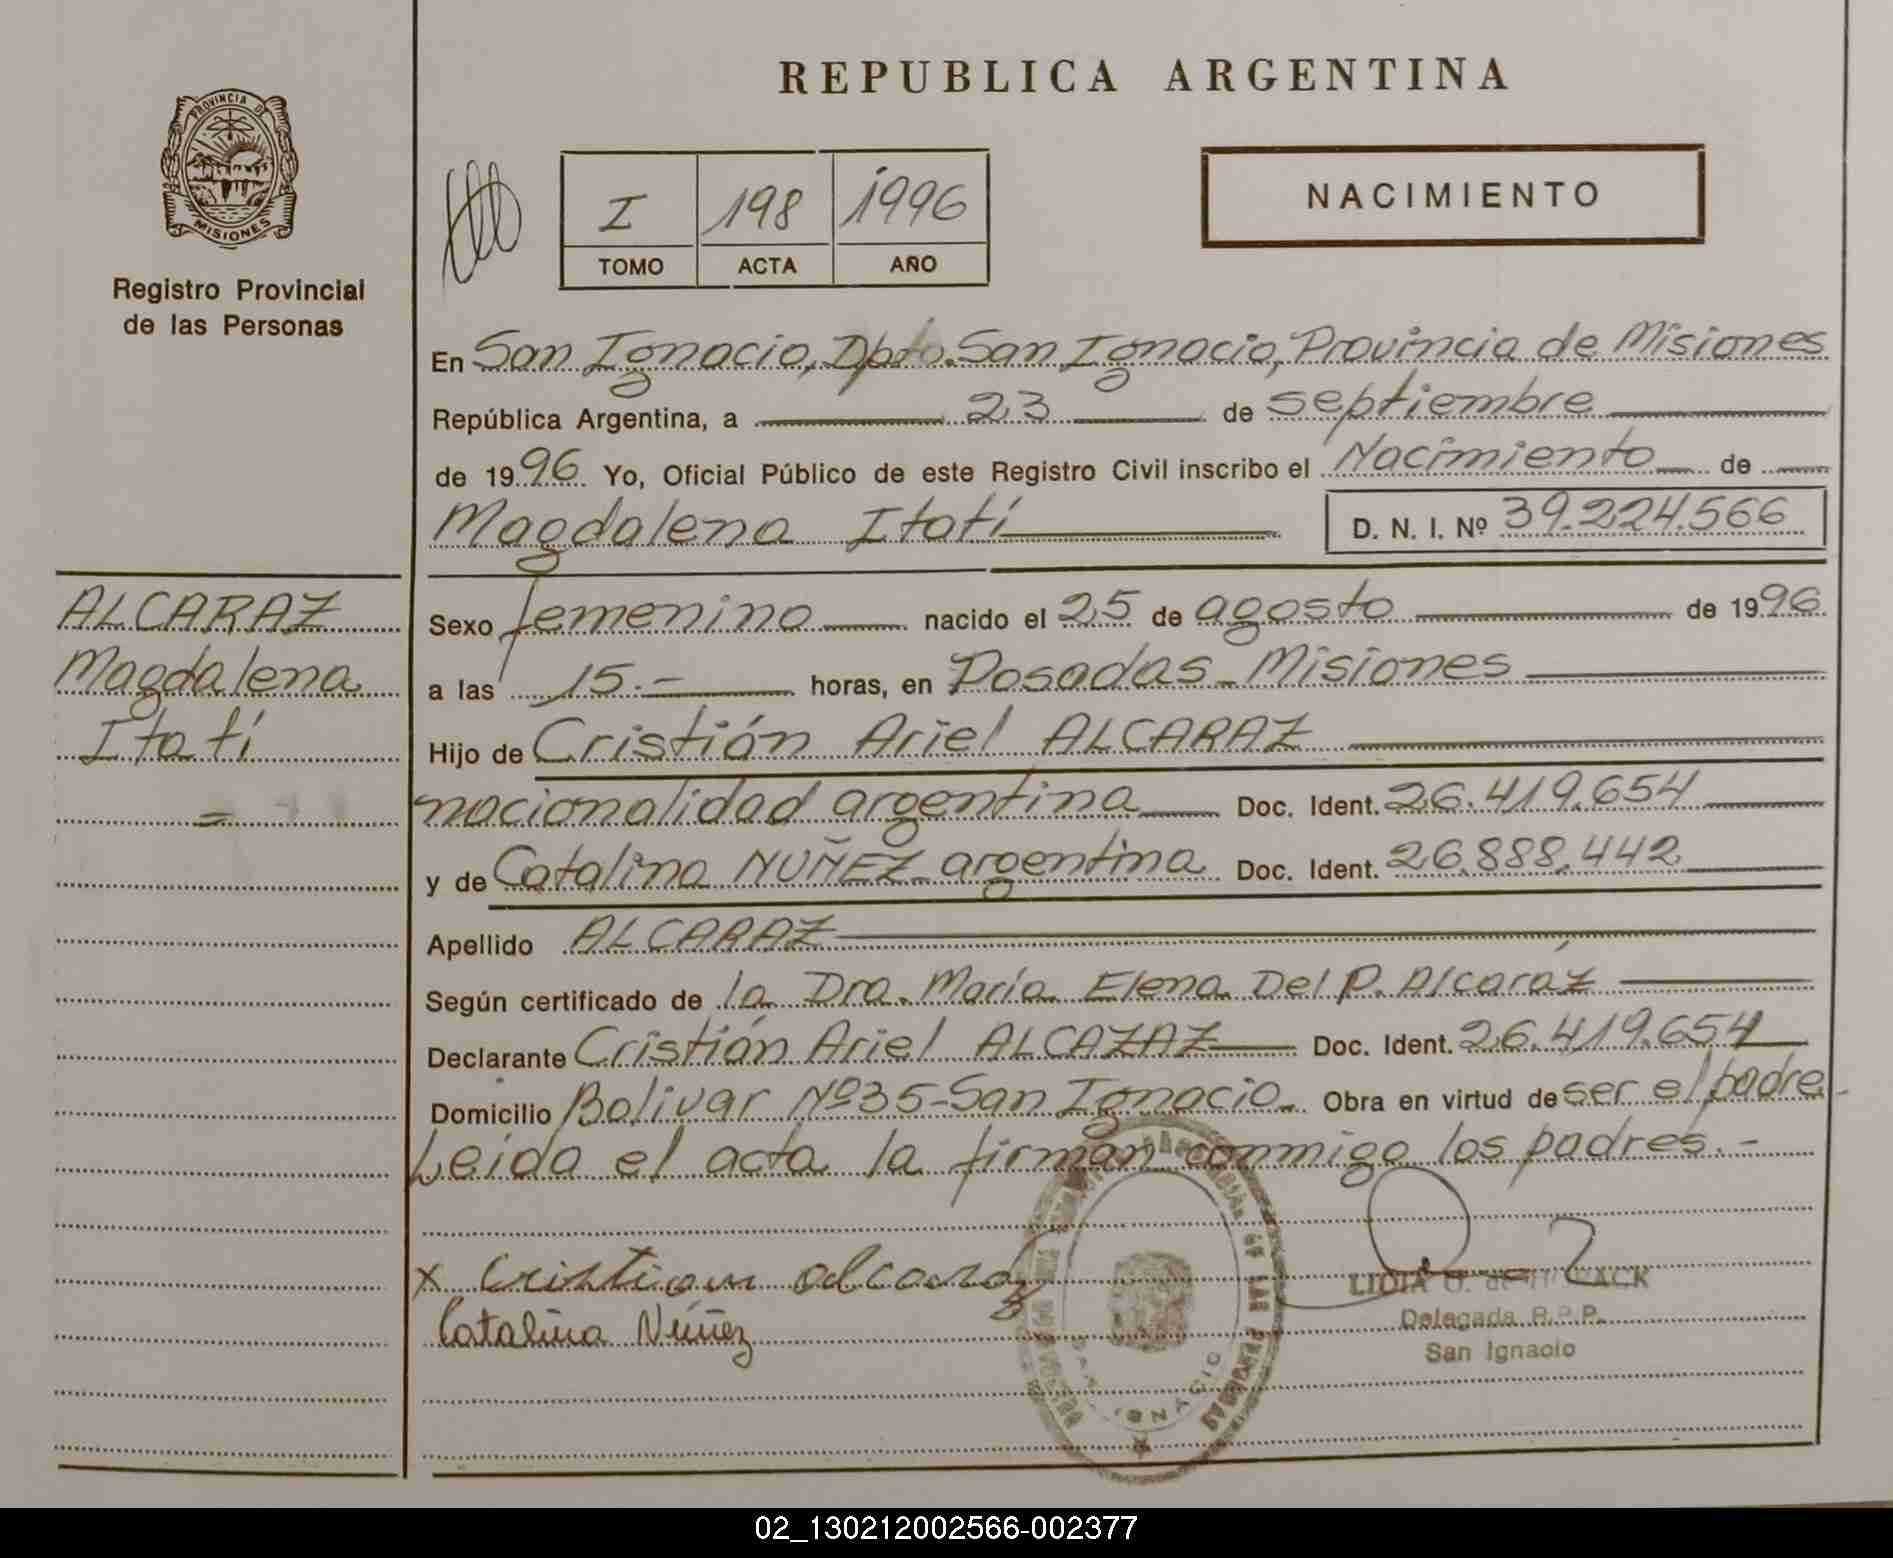 REPUBLICA ARGENTINA
PROVINCIA DE
MISIONES
Registro Provincial
de las Personas
I 198 1996
TOMO ACTA AÑO
NACIMIENTO
En San Ignacio, Dpto. San Ignacio, Provincia de Misiones
República Argentina, a 23 de septiembre
de 1996 Yo, Oficial Público de este Registro Civil inscribo el Nacimiento de
Magdalena Itatí D. N. I. Nº 39.224.566
ALCARAZ
Magdalena
Itatí
=
Sexo femenino nacido el 25 de agosto de 1996
a las 15.- horas, en Posadas - Misiones
Hijo de Cristián Ariel ALCARAZ
nacionalidad argentina Doc. Ident. 26.419.654
y de Catalina NUÑEZ - argentina Doc. Ident. 26.888.442
Apellido ALCARAZ
Según certificado de la Dra. María Elena Del P. Alcaráz
Declarante Cristián Ariel ALCAZAZ Doc. Ident. 26.419.654
Domicilio Bolivar Nº 35 - San Ignacio - Obra en virtud de ser el padre -
Leida el acta la firman conmigo los padres.-
x Cristian alcaraz
Catalina Núñez
LIDIA G. de
Delegada R.P.P.
San Ignacio
02_130212002566-002377